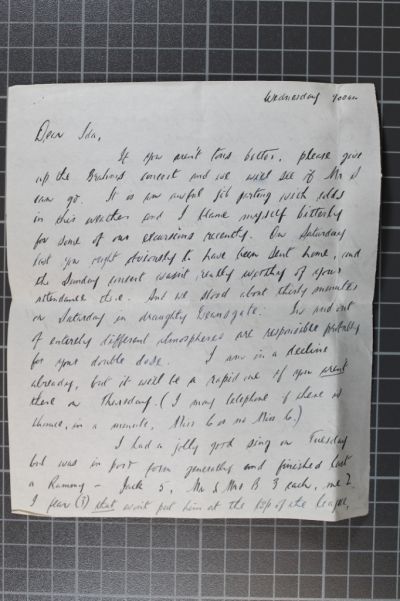 Wednesday 9.00am
Dear Ida,
If you aren't tons better, please give
up the Brahms concert and we will see if Mr S
can go. It is an awful job parting with colds
in this weather and I blame myself bitterly
for some of our excursions recently. On Saturday
last you ought obviously to have been sent home, and
the Sunday concert wasn't really worthy of your
attendance there. And we stood about thirty minutes
on Saturday in draughty Deansgate. In and out
of entirely different atmospheres are responsible probably
for your double dose. I am in a decline
already, but it will be a rapid one if you aren't
there on Thursday. (I may telephone if there is
chance, in a minute, Miss C or no Miss C.)
I had a jolly good sing on Tuesday
but was in poor form generally and finished last
a Rummy – Jack 5, Mr & Mrs B 3 each, me 2.
I fear (?) that won't put him at the top of the league,